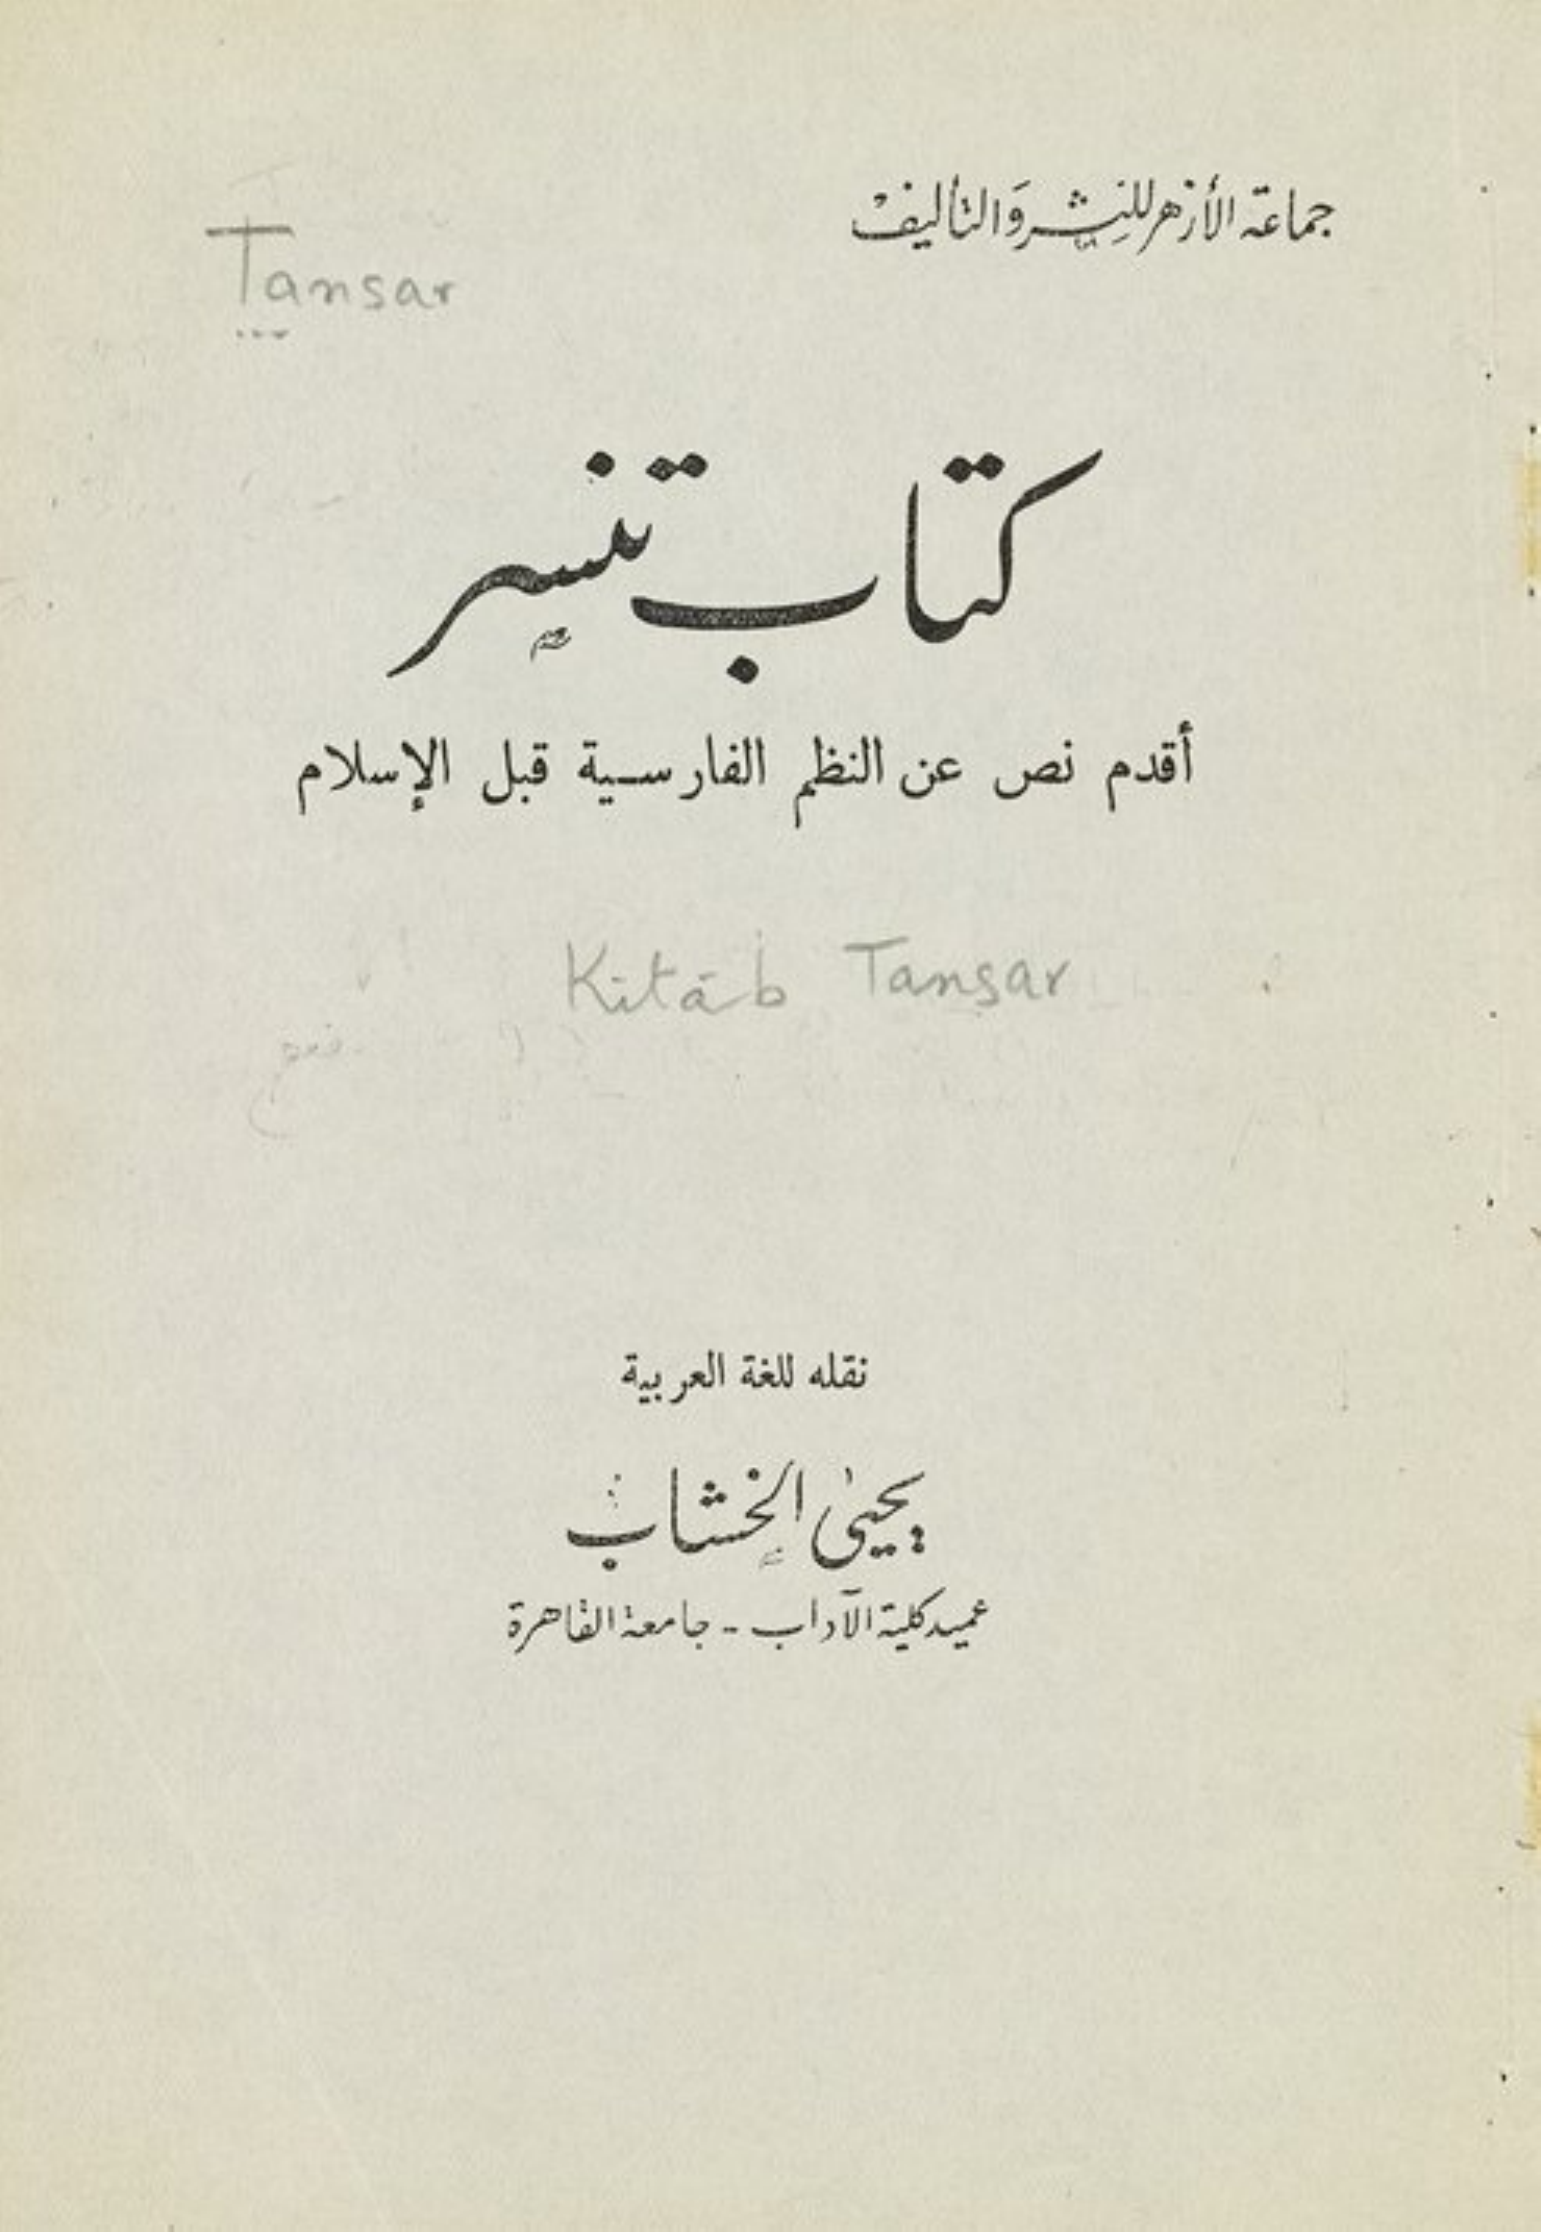 جماعة الأزهر للنشر والتأليف
Tansar
كتاب تنسر
أقدم نص عن النظم الفارسية قبل الإسلام
Kitāb Tansar
نقله للغة العربية
يحيى الخشاب
عميد كلية الآداب - جامعة القاهرة